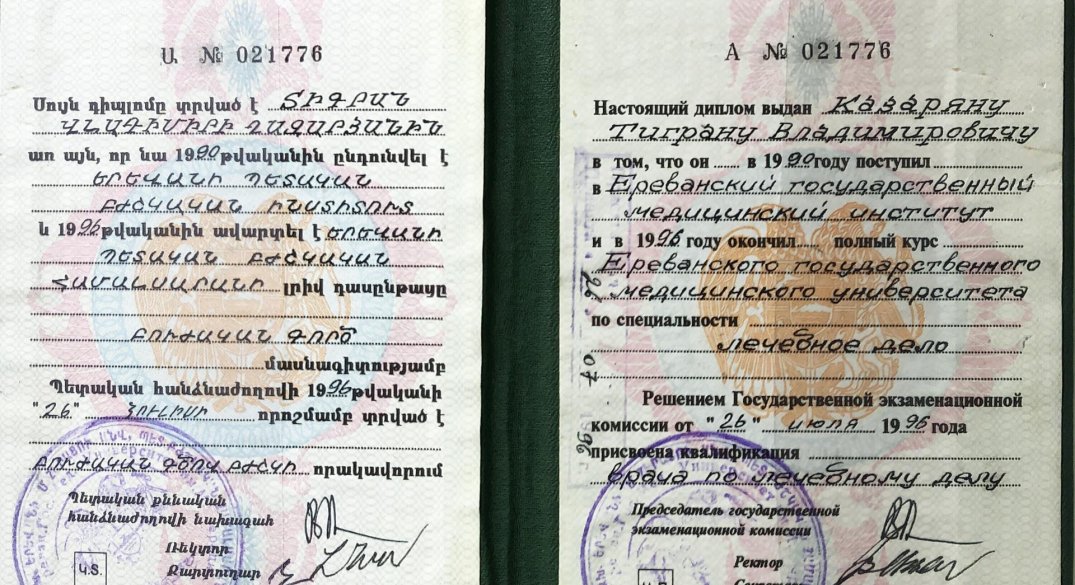 Ա № 021776
Սույն դիպլոմը տրված է ՏԻԳՐԱՆ
ՎԼԱԴԻՄԻՐԻ ՂԱԶԱՐՅԱՆԻՆ
առ այն, որ նա 1990 թվականին ընդունվել է
ԵՐԵՎԱՆԻ ՊԵՏԱԿԱՆ
ԲԺՇԿԱԿԱՆ ԻՆՍՏԻՏՈՒՏ
և 1996 թվականին ավարտել է ԵՐԵՎԱՆԻ
ՊԵՏԱԿԱՆ ԲԺՇԿԱԿԱՆ
ՀԱՄԱԼՍԱՐԱՆԻ լրիվ դասընթացը
ԲՈՒԺԱԿԱՆ ԳՈՐԾ
մասնագիտությամբ
Պետական հանձնաժողովի 1996 թվականի
"26" ՀՈՒԼԻՍԻ որոշմամբ տրված է
ԲՈՒԺԱԿԱՆ ԳԾՈՎ ԲԺՇԿԻ որակավորում
Պետական քննական
հանձնաժողովի նախագահ
Ռեկտոր
Քարտուղար
Կ.Տ.
А № 021776
Настоящий диплом выдан Казаряну
Тиграну Владимировичу
в том, что он в 1990 году поступил
в Ереванский государственный
медицинский институт
и в 1996 году окончил полный курс
Ереванского государственного
медицинского университета
по специальности
лечебное дело
Решением Государственной экзаменационной
комиссии от "26" июля 1996 года
присвоена квалификация
врача по лечебному делу
Председатель государственной
экзаменационной комиссии
Ректор
Секретарь